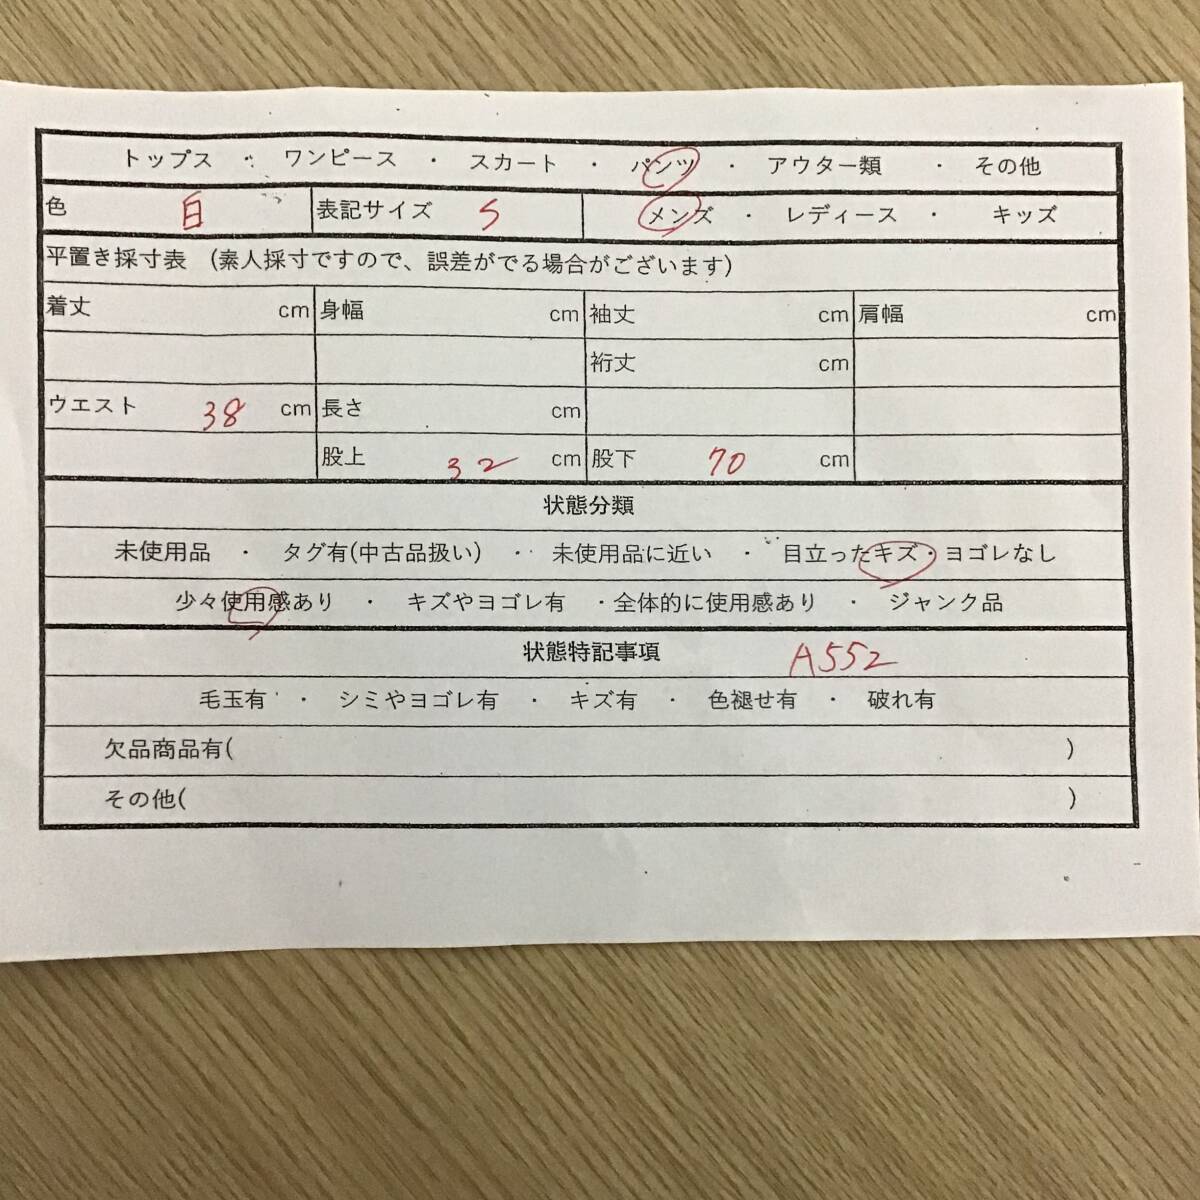 トップス ・ ワンピース ・ スカート ・ パンツ ・ アウター類 ・ その他
色 白 表記サイズ S メンズ ・ レディース ・ キッズ
平置き採寸表 (素人採寸ですので、誤差がでる場合がございます)
着丈 cm 身幅 cm 袖丈 cm 肩幅 cm
裄丈 cm
ウエスト 38 cm 長さ cm
股上 32 cm 股下 70 cm
状態分類
未使用品 ・ タグ有(中古品扱い) ・ 未使用品に近い ・ 目立ったキズ・ヨゴレなし
少々使用感あり ・ キズやヨゴレ有 ・全体的に使用感あり ・ ジャンク品
状態特記事項 A552
毛玉有 ・ シミやヨゴレ有 ・ キズ有 ・ 色褪せ有 ・ 破れ有
欠品商品有( )
その他( )